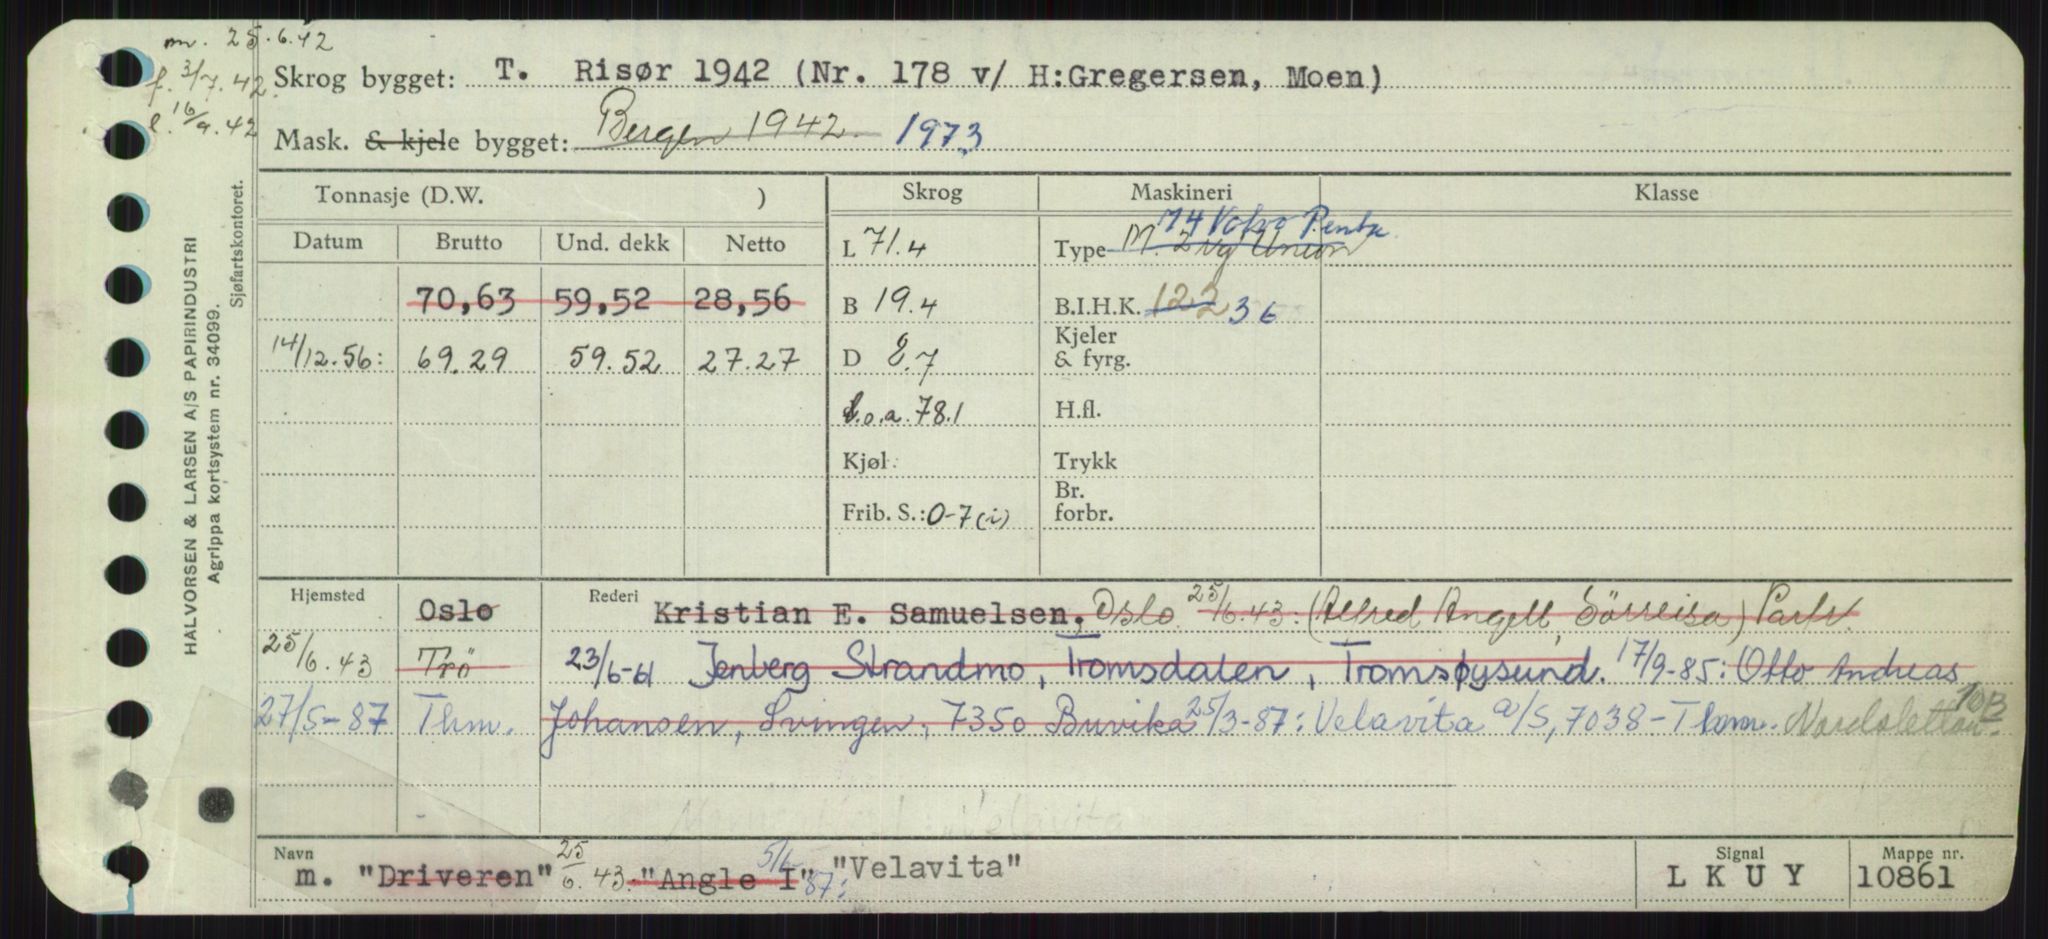 m. 25.6.42
f. 3/7.42
l. 16/9.42
Skrog bygget: T. Risør 1942 (Nr. 178 v/ H:Gregersen, Moen)
Mask. & kjele bygget: Bergen 1942 1973
HALVORSEN & LARSEN A/S PAPIRINDUSTRI
Agrippa kortsystem nr. 34099.
Sjøfartskontoret.
Tonnasje (D.W. ) Skrog Maskineri Klasse
Datum Brutto Und. dekk Netto
L 71.4
74 Volvo Penta
Type M. 2 syl Union
70,63 59,52 28,56
B 19.4
B.I.H.K. 122 36
14/12.56: 69.29 59.52 27.27
D 8.7
Kjeler
& fyrg.
l.o.a. 78.1
H.fl.
Kjøl
Trykk
Frib. S.: 0-7 (i)
Br.
forbr.
Hjemsted Oslo Rederi Kristian E. Samuelsen, Oslo 25/6.43: (Alfred Angell, Sörreisa) Partr.
25/6.43 Trö 23/6-61 Jenberg Strandmo, Tromsdalen, Tromsøysund. 17/9-85: Otto Andreas
27/5-87 Thm. Johansen, Svingen, 7350 Buvika 25/3-87: Velavita a/s, 7038-Thm. Nardosletta 10B
Velavita
Navn m. "Driveren" 25/6.43: "Angle I" 5/6-87: "Velavita"
Signal LKUY
Mappe nr. 10861